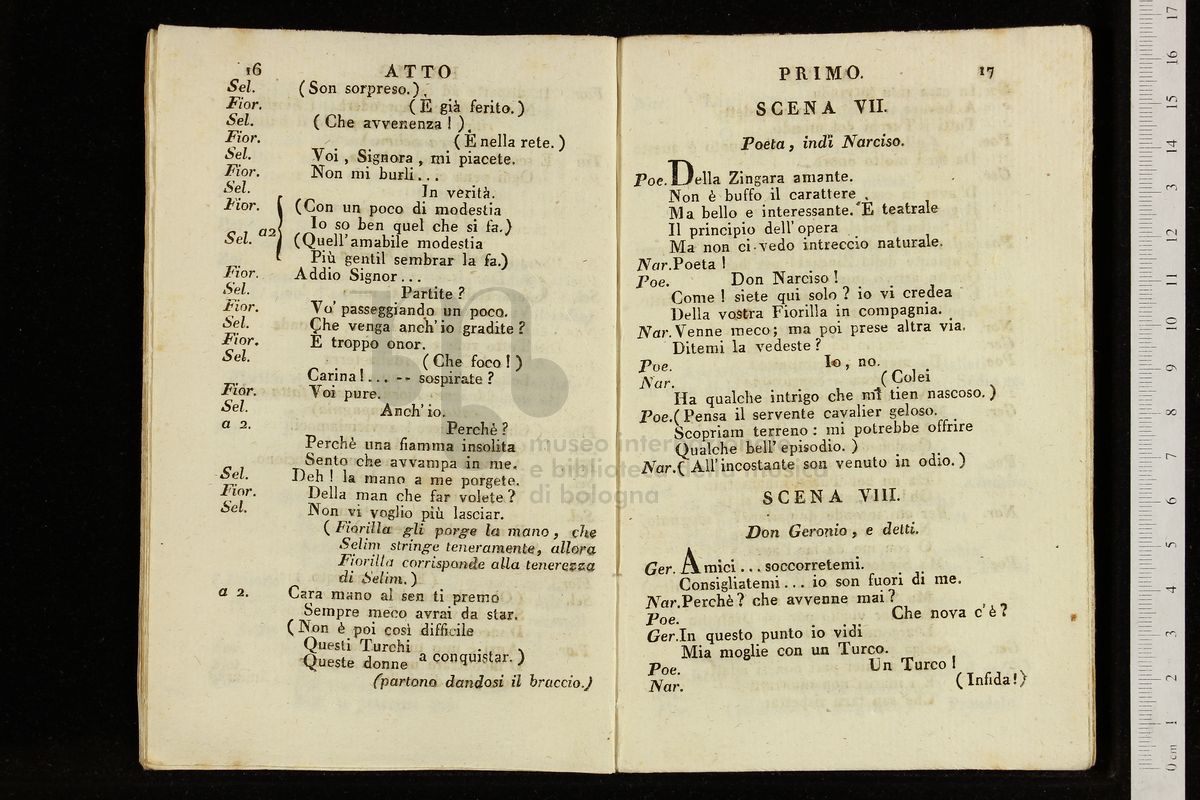 16 ATTO
Sel. (Son sorpreso.)
Fior. (È già ferito.)
Sel. (Che avvenenza!)
Fior. (È nella rete.)
Sel. Voi, Signora, mi piacete.
Fior. Non mi burli...
Sel. In verità.
Fior. (Con un poco di modestia
Io so ben quel che si fa.)
a2
Sel. (Quell'amabile modestia
Più gentil sembrar la fa.)
Fior. Addio Signor...
Sel. Partite?
Fior. Vo' passeggiando un poco.
Sel. Che venga anch'io gradite?
Fior. È troppo onor.
Sel. (Che foco!)
Carina!... -- sospirate?
Fior. Voi pure.
Sel. Anch'io.
a 2. Perchè?
Perchè una fiamma insolita
Sento che avvampa in me.
Sel. Deh! la mano a me porgete.
Fior. Della man che far volete?
Sel. Non vi voglio più lasciar.
(Fiorilla gli porge la mano, che
Selim stringe teneramente, allora
Fiorilla corrisponde alla tenerezza
di Selim.)
a 2. Cara mano al sen ti premo
Sempre meco avrai da star.
(Non è poi così difficile
Questi Turchi
Queste donne a conquistar.)
(partono dandosi il braccio.)
PRIMO. 17
SCENA VII.
Poeta, indi Narciso.
Poe. Della Zingara amante.
Non è buffo il carattere,
Ma bello e interessante. È teatrale
Il principio dell'opera
Ma non ci vedo intreccio naturale.
Nar. Poeta!
Poe. Don Narciso!
Come! siete qui solo? io vi credea
Della vostra Fiorilla in compagnia.
Nar. Venne meco; ma poi prese altra via.
Ditemi la vedeste?
Poe. Io, no.
Nar. (Colei
Ha qualche intrigo che mi tien nascoso.)
Poe. (Pensa il servente cavalier geloso.
Scopriam terreno: mi potrebbe offrire
Qualche bell'episodio.)
Nar. (All'incostante son venuto in odio.)
SCENA VIII.
Don Geronio, e detti.
Ger. Amici... soccorretemi.
Consigliatemi... io son fuori di me.
Nar. Perchè? che avvenne mai?
Poe. Che nova c'è?
Ger. In questo punto io vidi
Mia moglie con un Turco.
Poe. Un Turco!
Nar. (Infida!)
museo internazionale
e biblioteca della musica
di bologna
0 cm 1 2 3 4 5 6 7 8 9 10 11 12 13 14 15 16 17